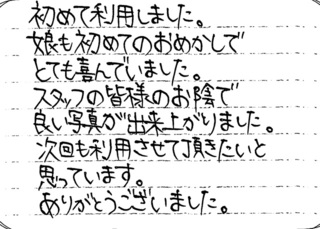 初めて利用しました。
娘も初めてのおめかしで
とても喜んでいました。
スタッフの皆様のお陰で
良い写真が出来上がりました。
次回も利用させて頂きたいと
思っています。
ありがとうございました。